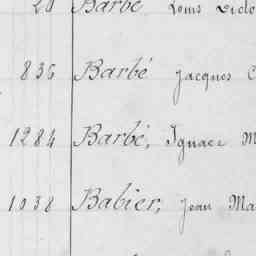 20 Barbé Louis Victo
836 Barbé Jacques C
1284 Barbé, Ignace M
1038 Babier, Jean Ma